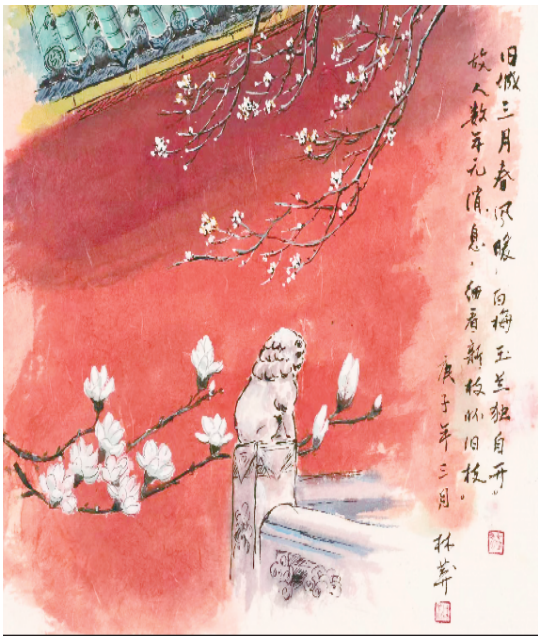 旧城三月春风暖，白梅玉兰独自开。
故人数年无消息，细看新枝怀旧枝。
庚子年三月 林莽